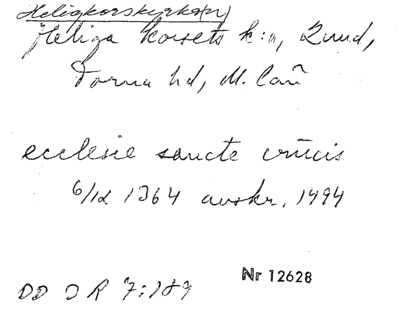 Heligkorskyrka(n)
Heliga korsets k:a, Lund,
Torna hd, M. län
ecclesie sancte crucis
6/12 1364 avskr. 1494
DD 3 R 7:189
Nr 12628